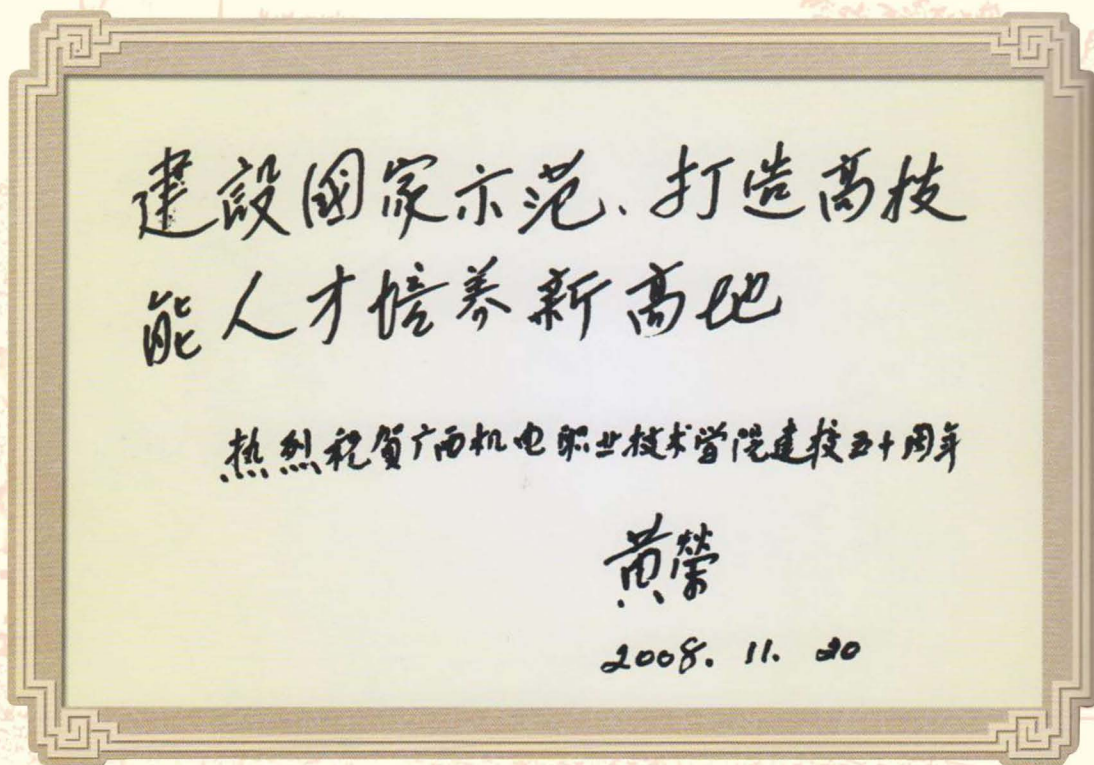 建設國家示范、打造高技
能人才培养新高地
热烈祝賀广西机电职业技术学院建校五十周年
黄榮
2008.11.20